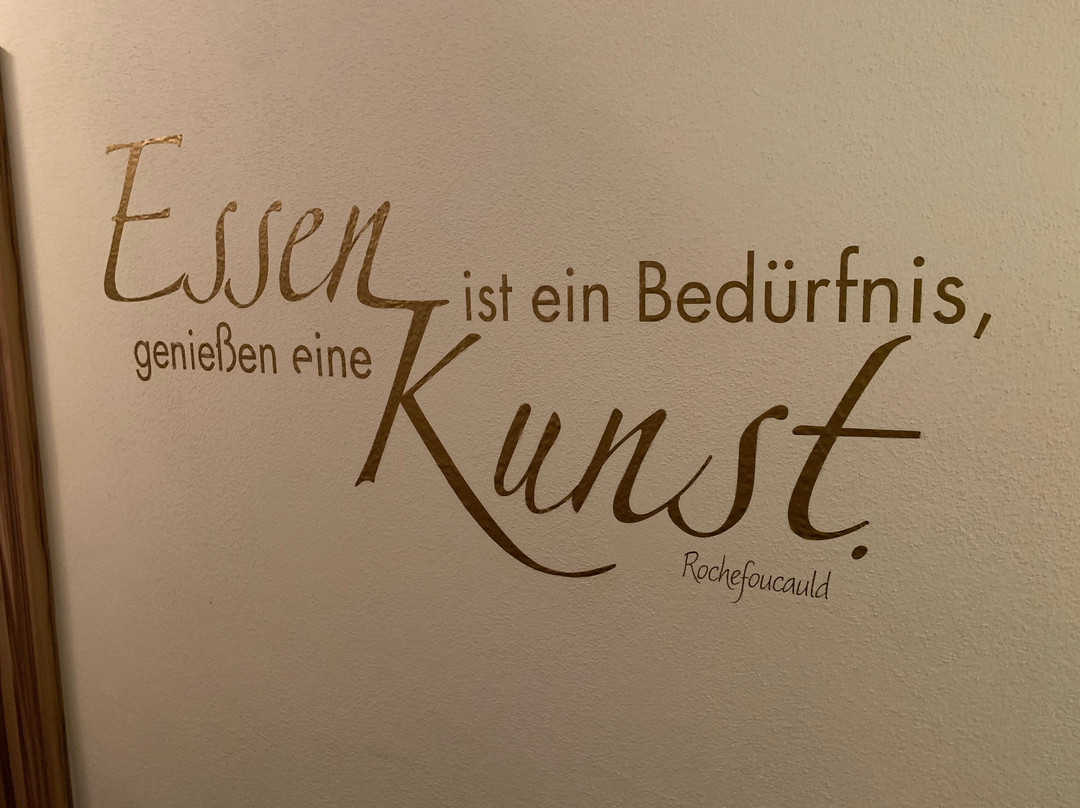 Essen ist ein Bedürfnis,
genießen eine Kunst.
Rochefoucauld